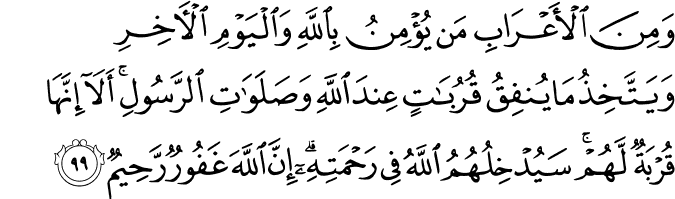 وَمِنَ ٱلْأَعْرَابِ مَن يُؤْمِنُ بِٱللَّهِ وَٱلْيَوْمِ ٱلْأَخِرِ
وَيَتَّخِذُ مَا يُنفِقُ قُرُبَٰتٍ عِندَ ٱللَّهِ وَصَلَوَٰتِ ٱلرَّسُولِ ۚ أَلَآ إِنَّهَا
قُرْبَةٌ لَّهُمْ ۚ سَيُدْخِلُهُمُ ٱللَّهُ فِى رَحْمَتِهِۦٓ ۗ إِنَّ ٱللَّهَ غَفُورٌ رَّحِيمٌ ٩٩